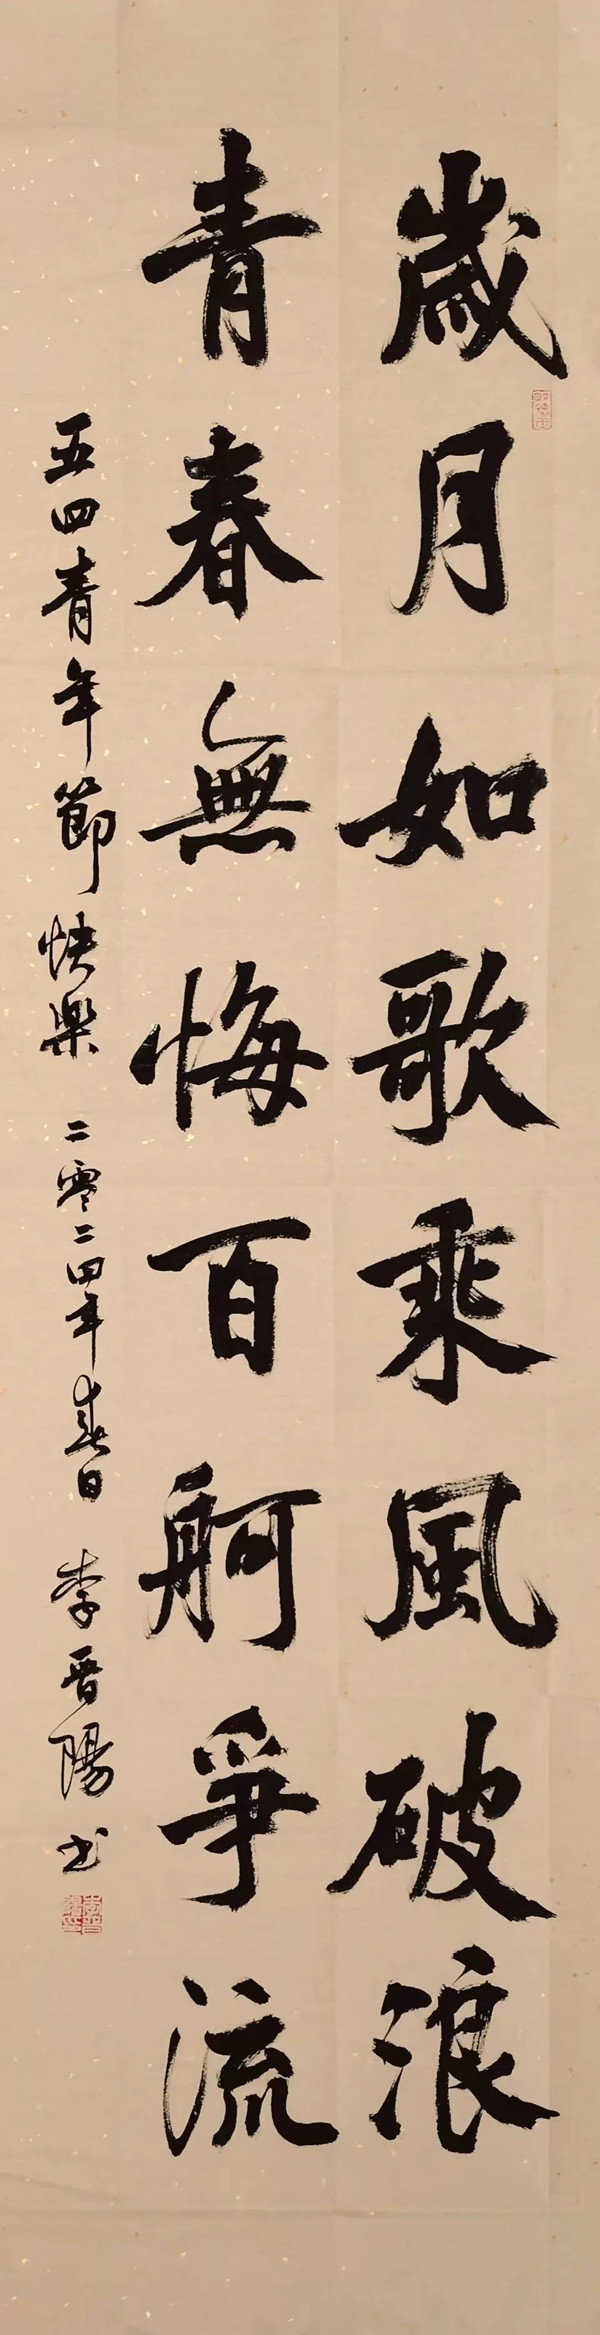 歲月如歌乘風破浪
青春無悔百舸爭流
五四青年節快樂 二零二四年春日 李晋陽书